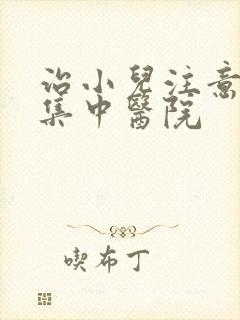 治小兒注意
集中醫院
喫布丁